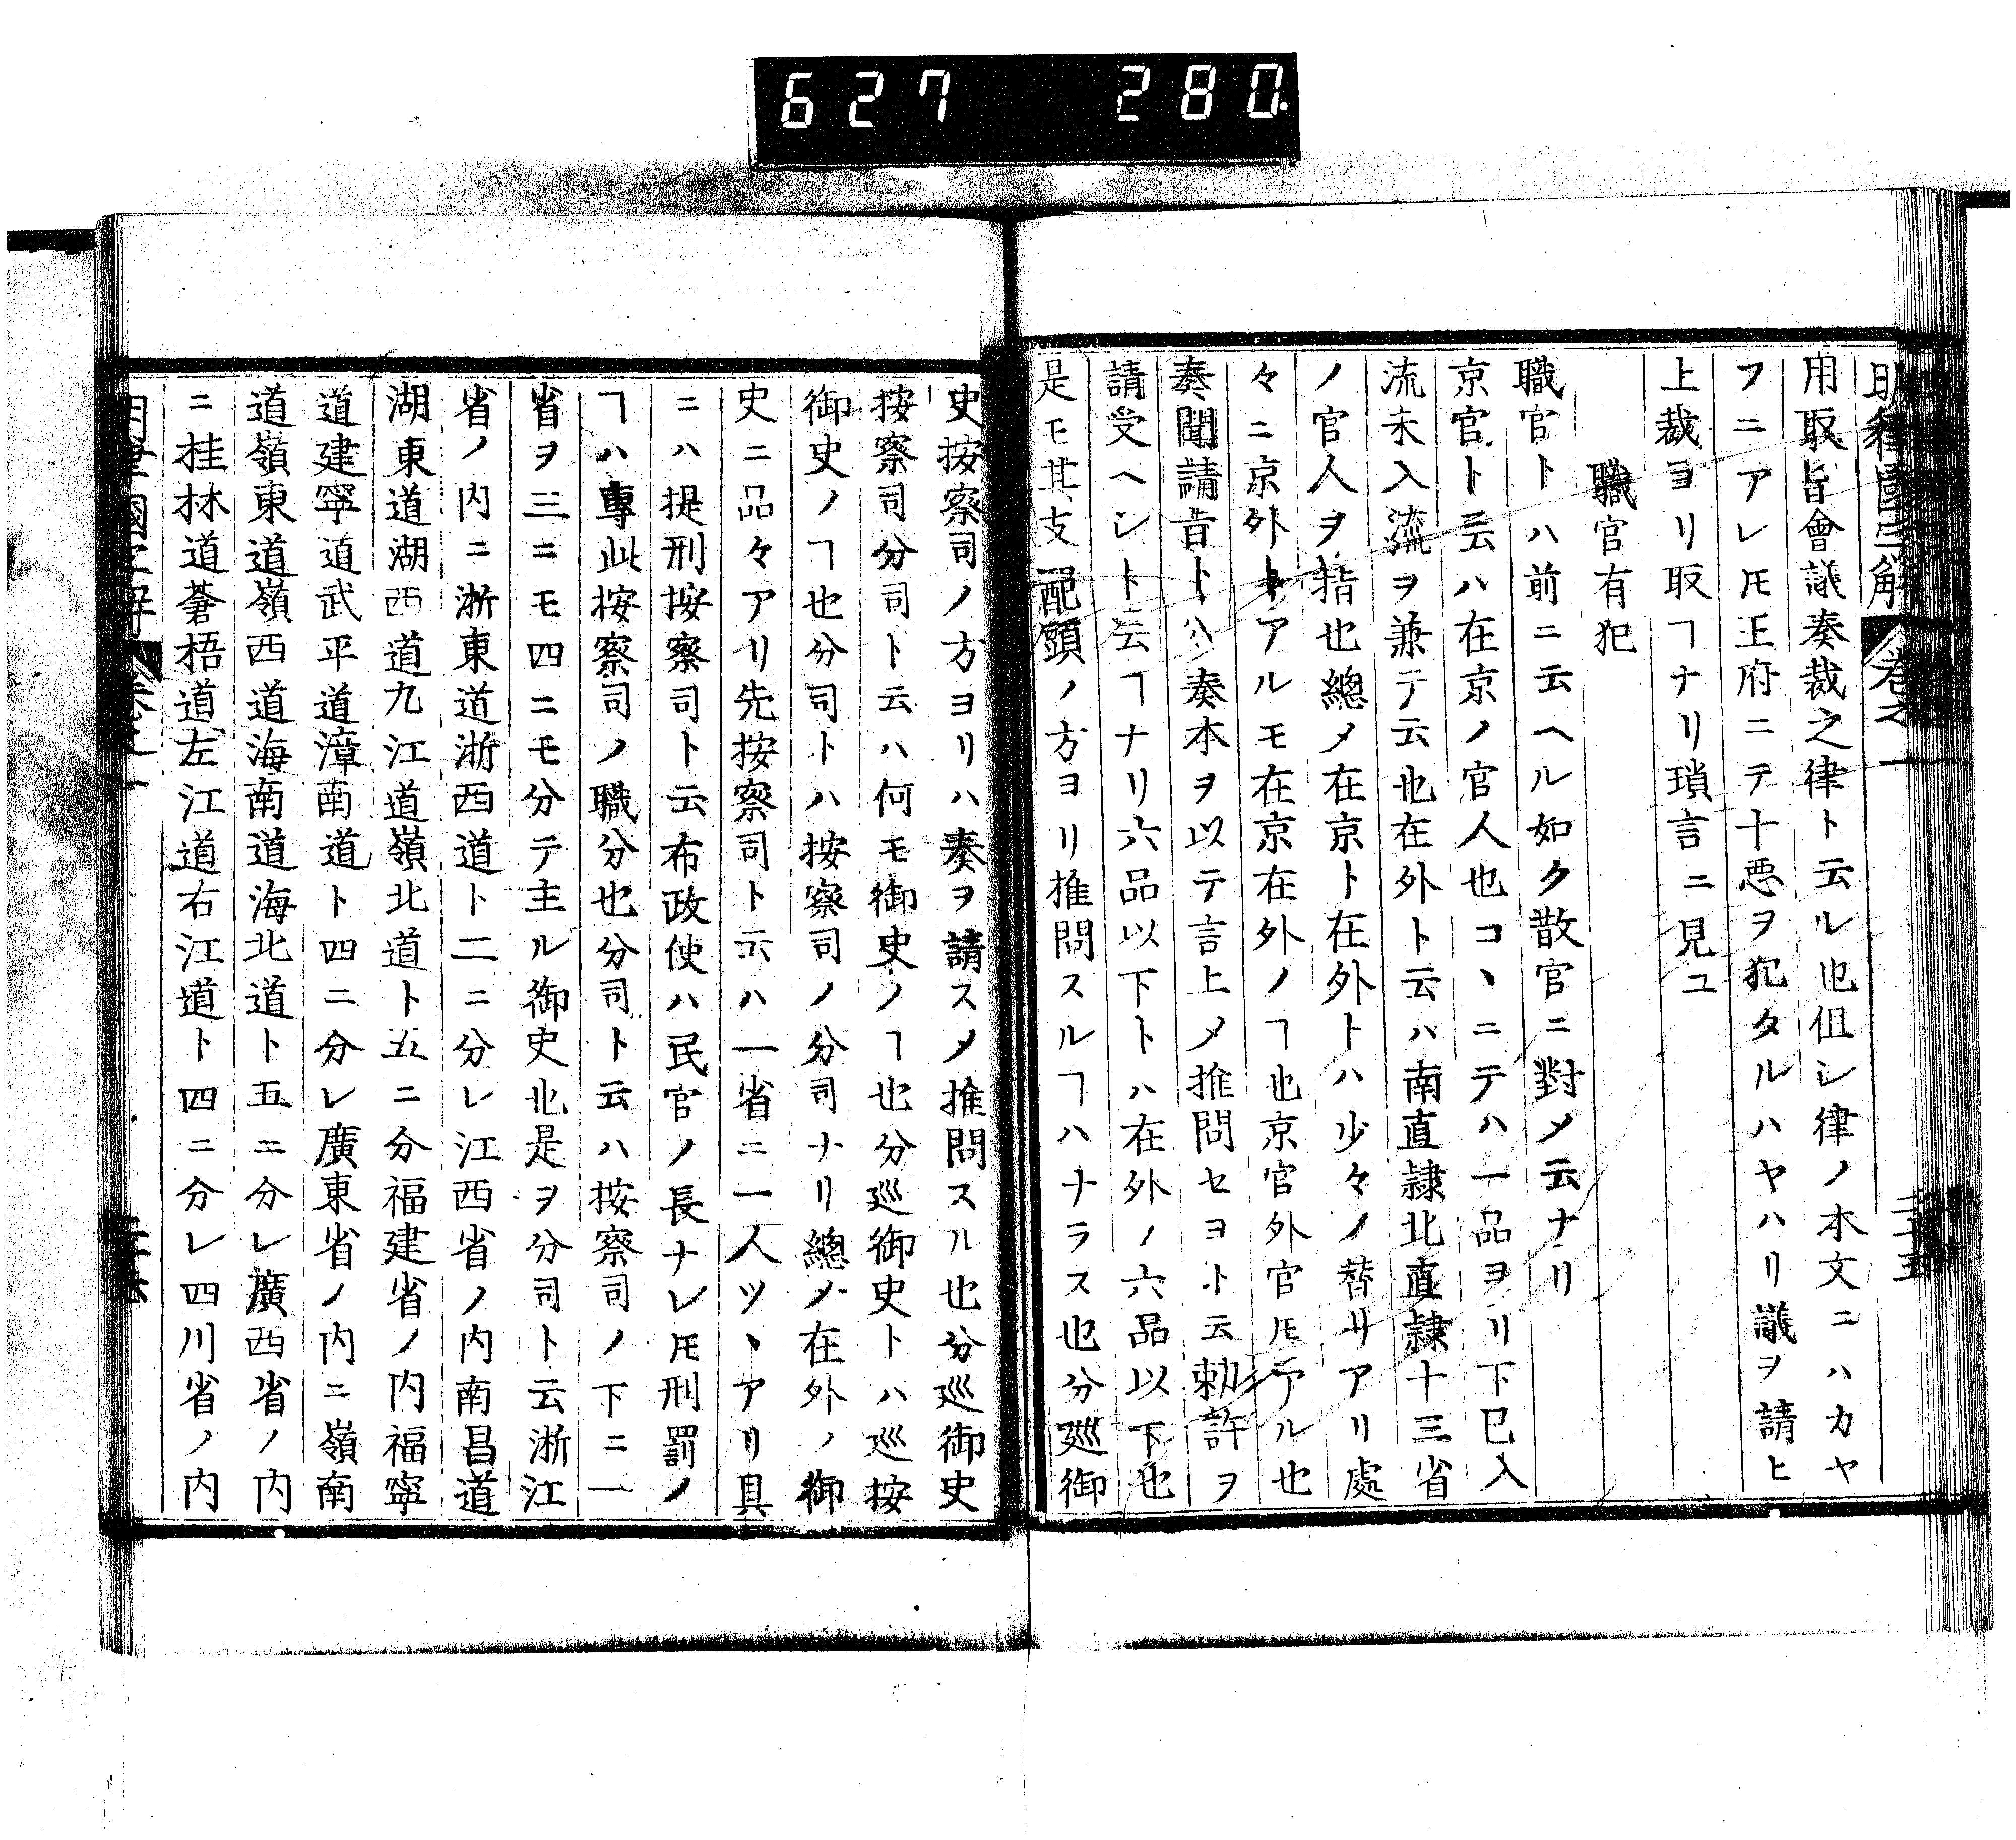 627 280
明律國字解 卷之一 二十五
用取旨會議奏裁之律ト云ル也但シ律ノ本文ニハカヤ
フニアレ𪜈王府ニテ十悪ヲ犯タルハヤハリ議ヲ請ヒ
上裁ヨリ取ヿナリ瑣言ニ見ユ
職官有犯
職官トハ前ニ云ヘル如ク散官ニ對メ云ナリ
京官ト云ハ在京ノ官人也コヽニテハ一品ヨリ下已入
流未入流ヲ兼テ云也在外ト云ハ南直隷北直隷十三省
ノ官人ヲ指也總メ在京ト在外トハ少々ノ替リアリ處
々ニ京外トアルモ在京在外ノヿ也京官外官𪜈アル也
奏聞請旨トハ奏本ヲ以テ言上メ推問セヨト云勅許ヲ
請受ヘシト云ヿナリ六品以下トハ在外ノ六品以下也
是モ其支配頭ノ方ヨリ推問スルヿハナラス也分廵御
史按察司ノ方ヨリハ奏ヲ請スメ推問スル也分巡御史
按察司分司ト云ハ何モ御史ノヿ也分巡御史トハ巡按
御史ノヿ也分司トハ按察司ノ分司ナリ總メ在外ノ御
史ニ品々アリ先按察司ト云ハ一省ニ一人ツヽアリ具
ニハ提刑按察司ト云布政使ハ民官ノ長ナレ𪜈刑罰ノ
ヿハ專此按察司ノ職分也分司ト云ハ按察司ノ下ニ一
省ヲ三ニモ四ニモ分テ主ル御史也是ヲ分司ト云浙江
省ノ内ニ浙東道浙西道ト二ニ分レ江西省ノ内南昌道
湖東道湖西道九江道嶺北道ト五ニ分福建省ノ内福寧
道建寧道武平道漳南道ト四ニ分レ廣東省ノ内ニ嶺南
道嶺東道嶺西道海南道海北道ト五ニ分レ廣西省ノ内
ニ桂林道蒼梧道左江道右江道ト四ニ分レ四川省ノ内